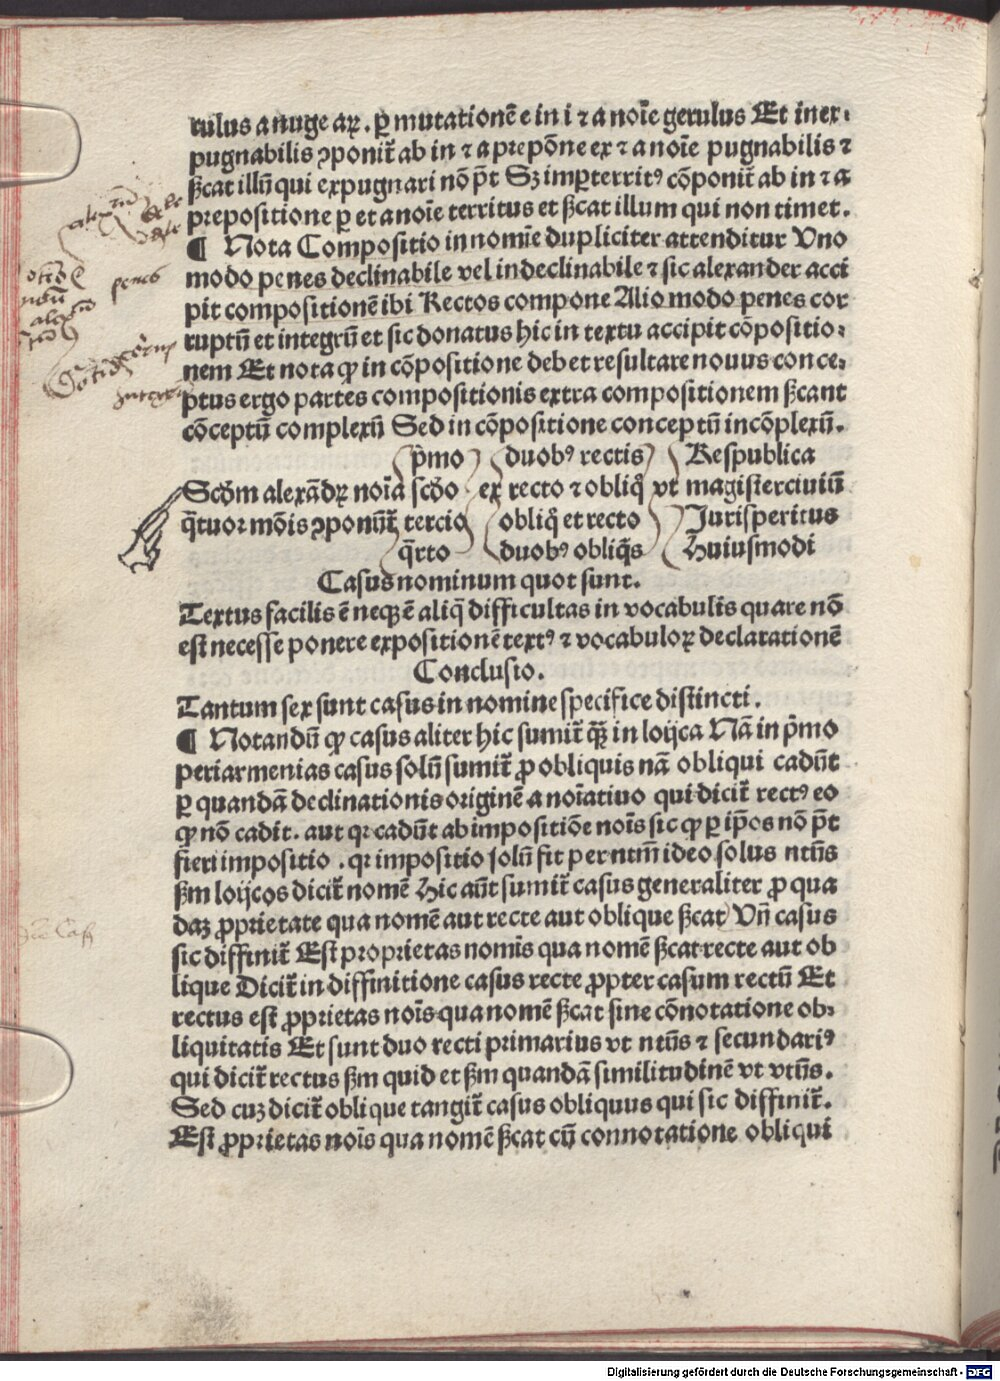 rulus a nuge aꝝ. ꝑ mutationē e in i ⁊ a noīe gerulus Et inex⸗
pugnabilis ꝯponit̃ ab in ⁊ a prepōne ex ⁊ a noīe pugnabilis ⁊
ßcat illū qui expugnari nō p̄t Sꝫ imꝑterritꝰ cōponit̃ ab in ⁊ a
prepositione ꝑ et a noīe territus et ßcat illum qui non timet.
¶ Nota Compositio in nomīe dupliciter attenditur Uno
modo penes declinabile vel indeclinabile ⁊ sic alexander acci
pit compositionē ibi Rectos compone Alio modo penes cor
ruptū et integrū et sic donatus hic in textu accipit cōpositio⸗
nem Et nota ꝙ in cōpositione debet resultare nouus conce⸗
ptus ergo partes compositionis extra compositionem ßcant
cōceptū complexū Sed in cōpositione conceptū incōplexū.
p̄mo duobꝰ rectis Respublica
Scd̄m alexādꝝ noīa scd̄o ex recto ⁊ obliq̄ vt magisterciuiū
q̄tuor mōis ꝯponūt̃ tercio obliq̄ et recto Jurisperitus
q̄rto duobꝰ obliq̄s Huiusmodi
Casus nominum quot sunt.
Textus facilis ē neqꝫ ē aliq̄ difficultas in vocabulis quare nō
est necesse ponere expositionē textꝰ ⁊ vocabuloꝝ declarationē
Conclusio.
Tantum sex sunt casus in nomine specifice distincti.
¶ Notandū ꝙ casus aliter hic sumit̃ qꝫ̄ in loijca Nā in p̄mo
periarmenias casus solū sumit̃ ꝓ obliquis nā obliqui cadūt
ꝑ quandā declinationis originē a noīatiuo qui dicit̃ rectꝰ eo
ꝙ nō cadit. aut qꝛ cadūt ab impositiōe noīs sic ꝙ ꝑ ip̄os nō p̄t
fieri impositio. qꝛ impositio solū fit per ntm̄ ideo solus ntūs
ßm loijcos dicit̃ nomē Hic aūt sumit̃ casus generaliter ꝓ qua
daꝫ ꝓprietate qua nomē aut recte aut oblique ßcat Un̄ casus
sic diffinit̃ Est proprietas nomīs qua nomē ßcat recte aut ob
lique Dicit̃ in diffinitione casus recte ꝓpter casum rectū Et
rectus est ꝓprietas noīs qua nomē ßcat sine cōnotatione ob⸗
liquitatis Et sunt duo recti primarius vt ntūs ⁊ secundariꝰ
qui dicit̃ rectus ßm quid et ßm quandā similitudinē vt vtūs.
Sed cuꝫ dicit̃ oblique tangit̃ casus obliquus qui sic diffinit̃.
Est ꝓprietas noīs qua nomē ßcat cū connotatione obliqui
penes
Digitalisierung gefördert durch die Deutsche Forschungsgemeinschaft - DFG